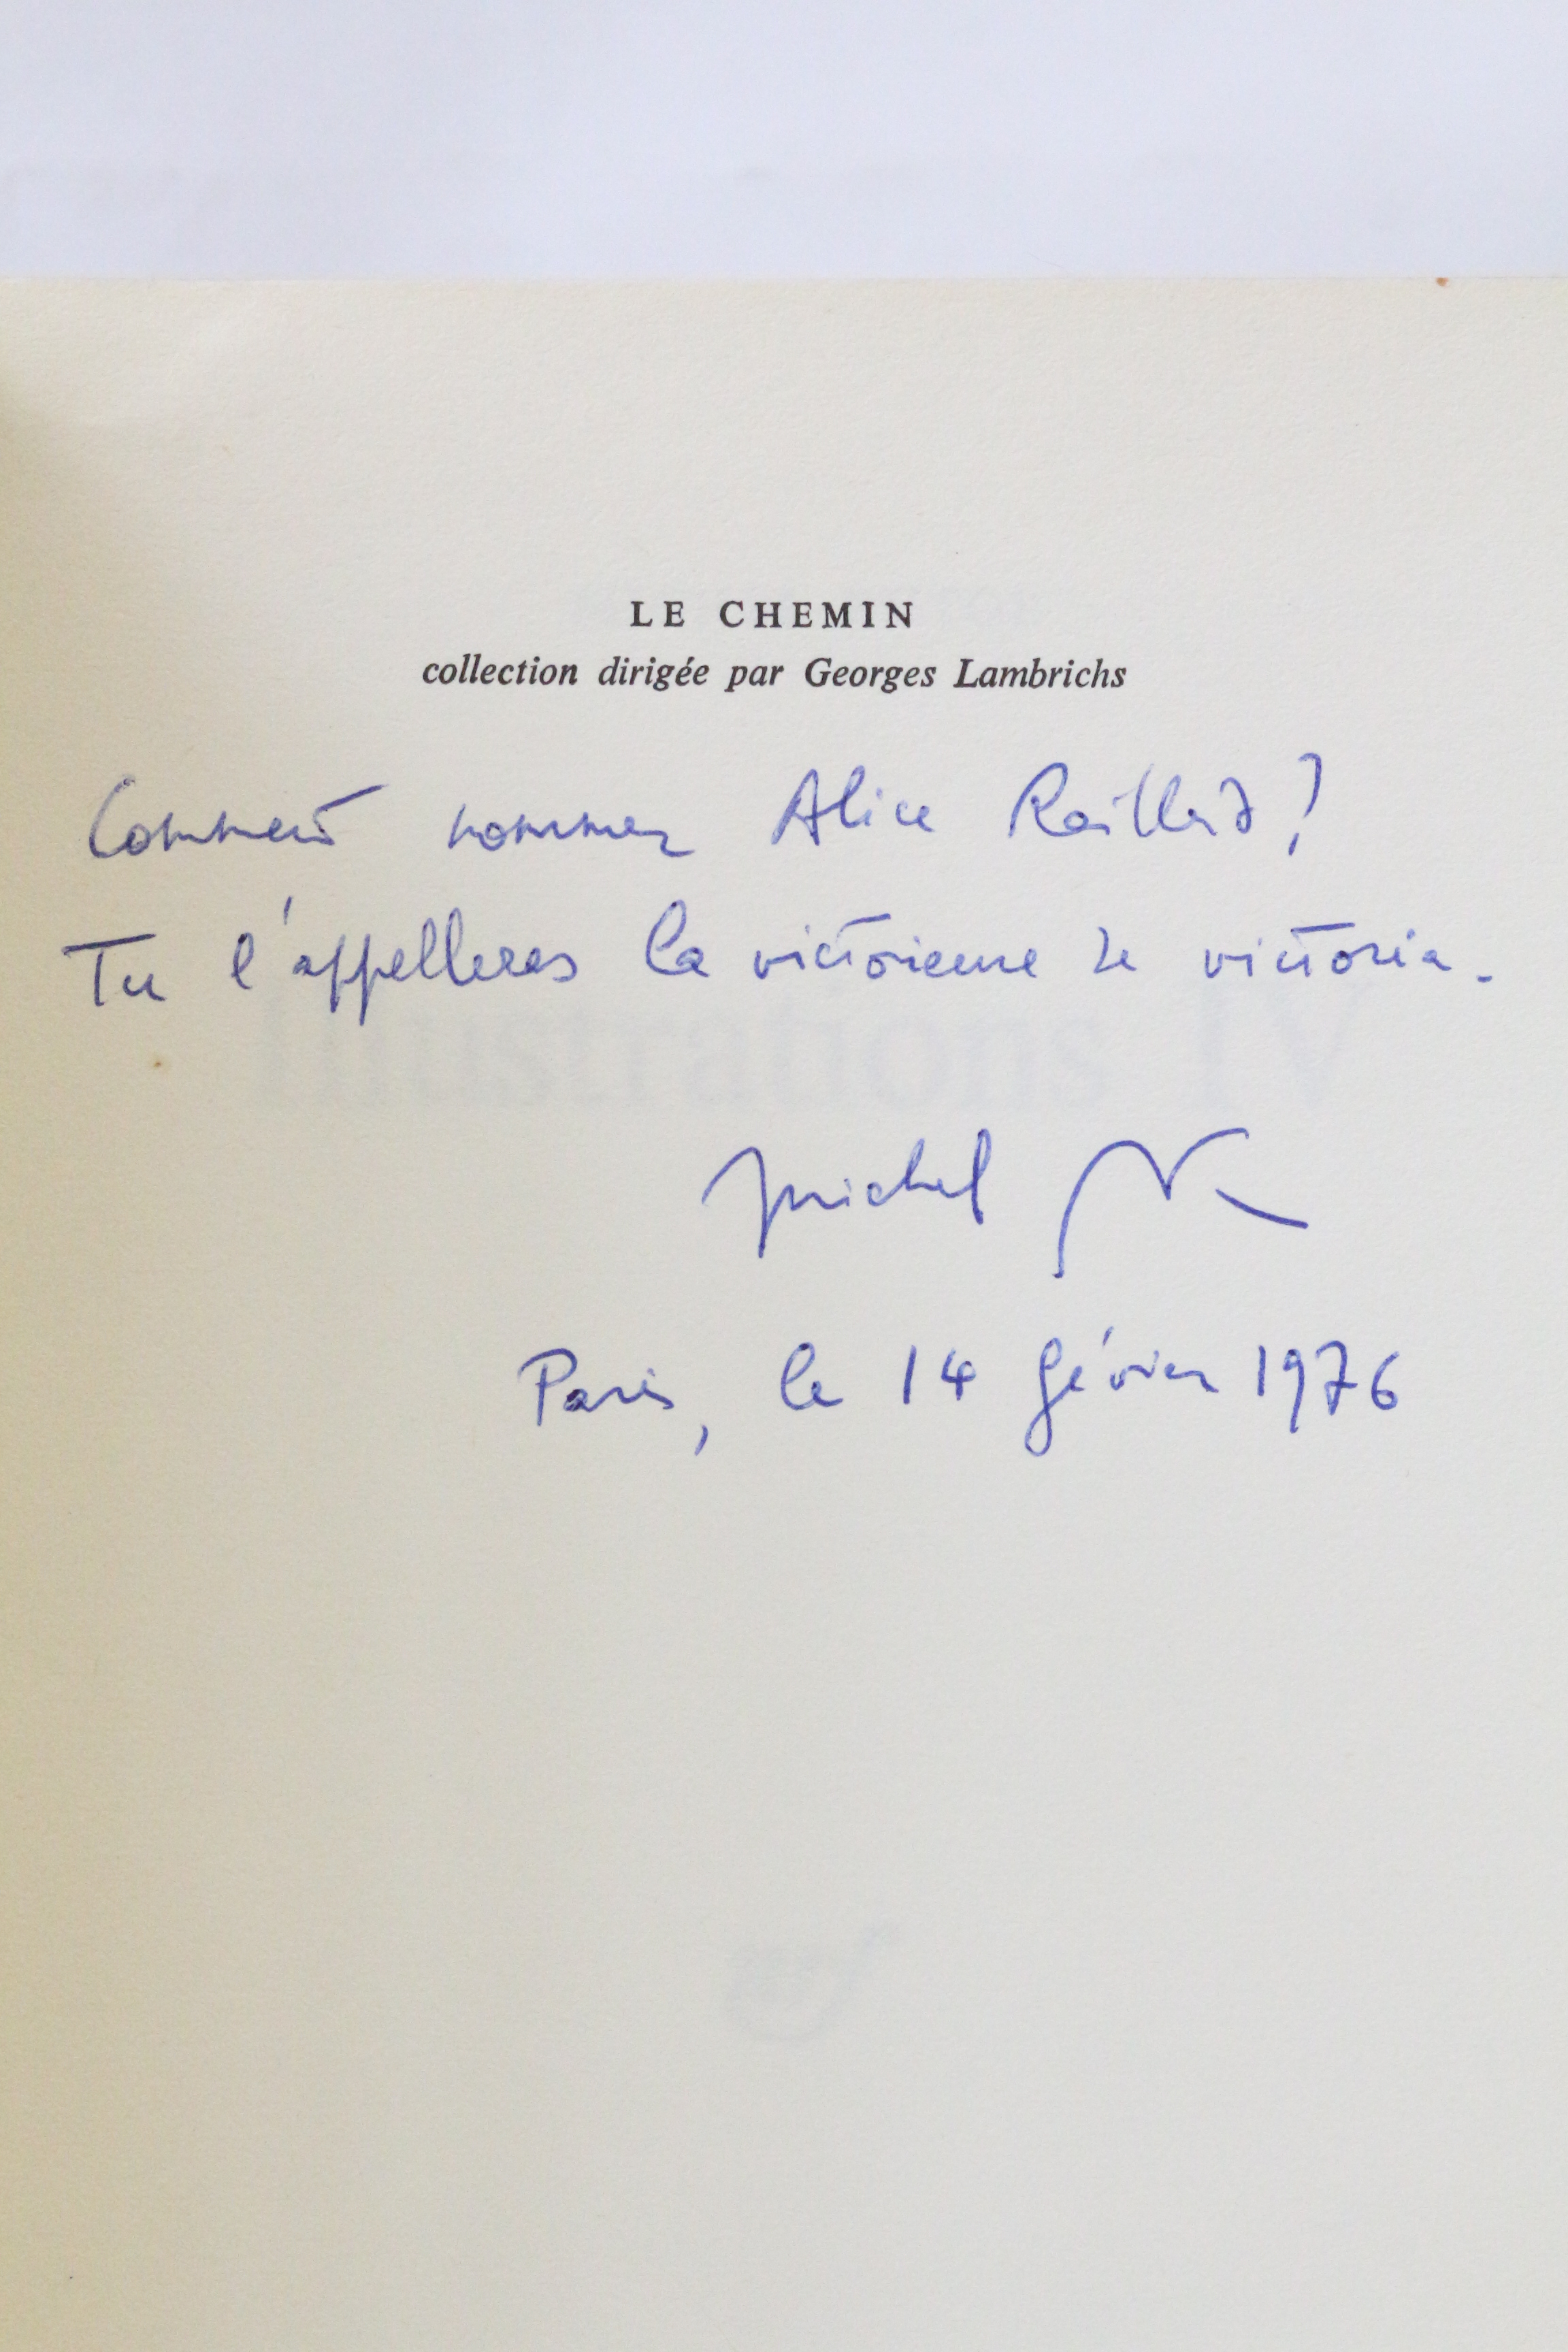 LE CHEMIN
collection dirigée par Georges Lambrichs
Comment nommer Alice Raillard ?
Tu l'appelleras la victorieuse de victoria.
Illustrations IV
Michel
Paris, le 14 février 1976